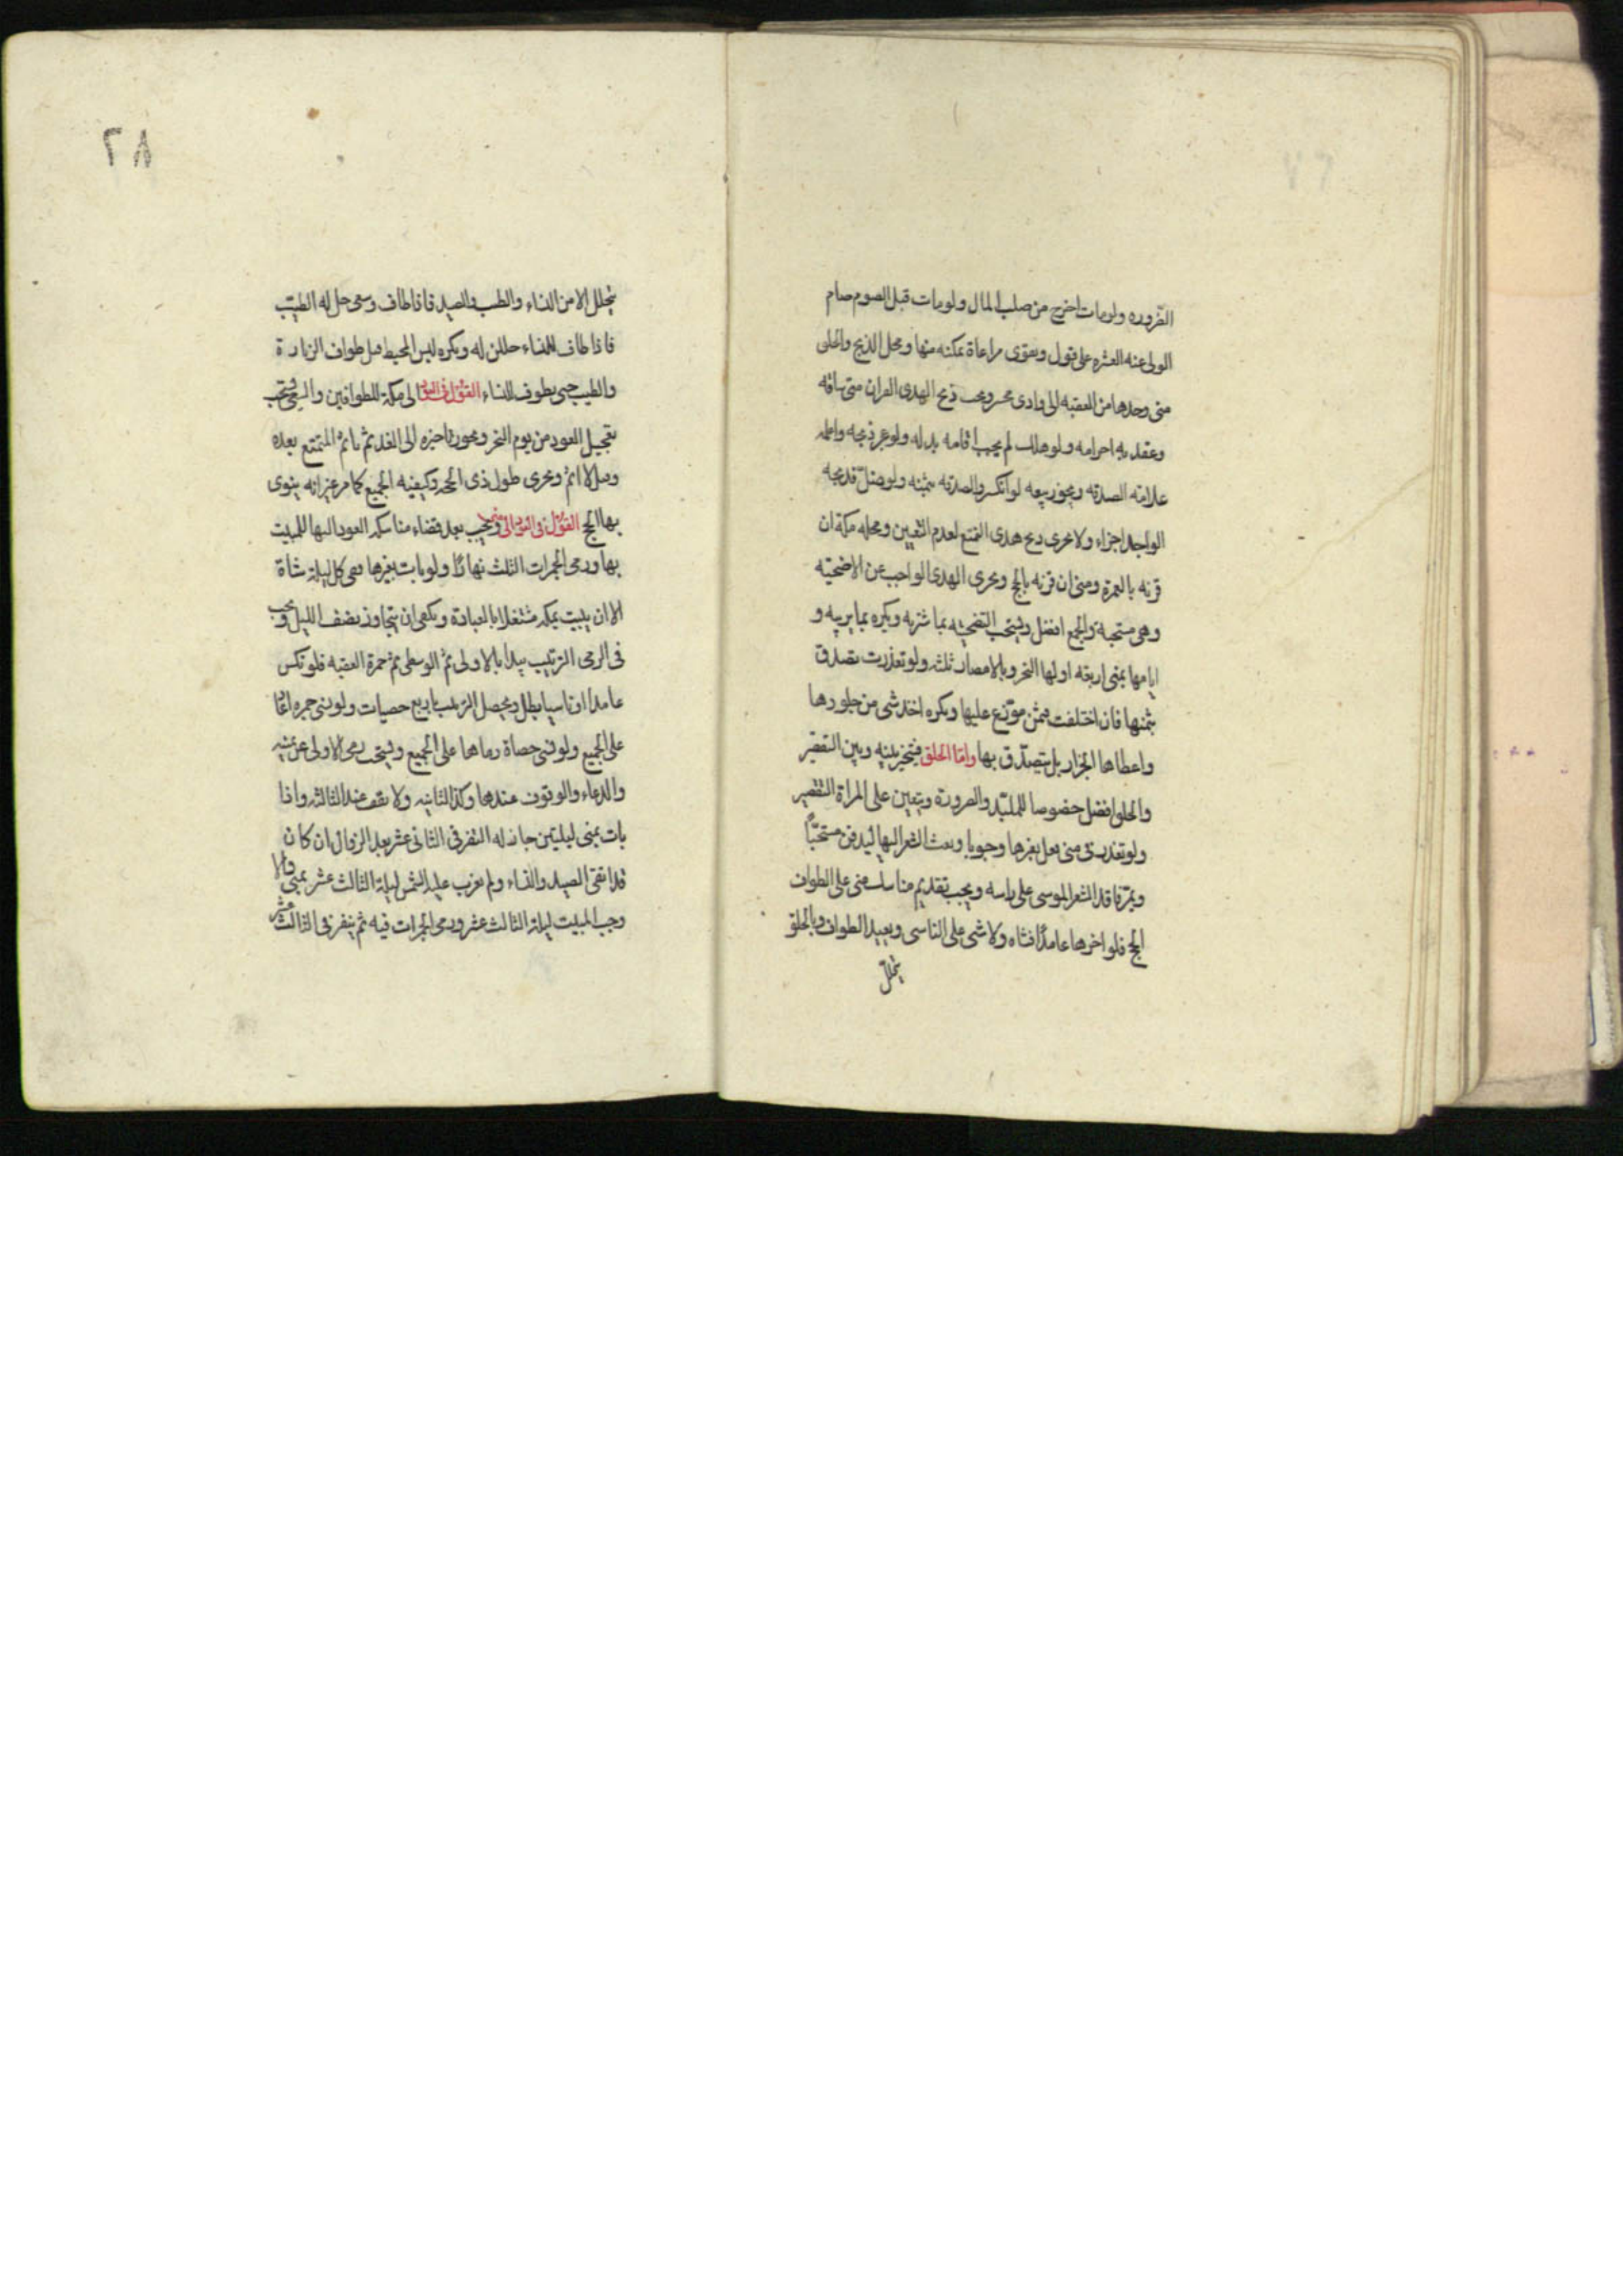 الضروره ولومات اخرج من صلب المال ولومات قبل الصوم صام
الولى عنه العشره على قول ويقوى مراعاة تمكنه منها ومحل الذبح والحلق
منى وحدها من العقبه الى وادى محسر ويجب ذبح الهدى القران متى ساقه
وعقد به احرامه ولو هلك لم يجب اقامه بدله ولو عجز ذبحه واعلمه
علامته الصدقه ويجوز بيعه لو انكسر والصدقه بثمنه ولو ضلّ فذبحه
الواجد اجزاء ولا يجزى ذبح هدى التمتع لعدم التعيين ومحله مكة ان
قرنه بالعمرة ومنى ان قرنه بالحج ويجزى الهدى الواجب عن الاضحيته
وهى مستحبة والجمع افضل ويستحب التضحيه بما شريه ويكره بما يربيه و
ايامها بمنى اربعة اولها النحر وبالامصار ثلثه ولو تعذرت تصدق
بثمنها فان اختلفت فبثمن موزّع عليها ويكره اخذ شى من جلودها
واعطاها الجزار بل يتصدّق بها وامّا الحلق فيتخير بينه وبين التقصير
والحلق افضل خصوصا للملبّد والصرورة ويتعين على المراة التقصير
ولو تعذر فى منى فعل بغيرها وجوبا وبعث الشعر اليها ليدفن مستحبّاً
ويمرّ فاقد الشعر الموسى على راسه ويجب تقديم مناسك منى على الطواف
الحج فلو اخرها عامداً فشاه ولا شى على الناسى ويعيد الطواف وبالحلق
يتحلل
٢٨
يتحلل الا من النساء والطيب والصيد فاذا طاف وسعى حل له الطيّب
فاذا طاف للنساء حللن له ويكره لبس المخيط قبل طواف الزيارة
والطيب حتى يطوف للنساء القول فى العود الى مكة للطوافين والسعى يستحب
تعجيل العود من يوم النحر ويجوز تاخيره الى الغد ثم ياثم المتمتع بعده
وقيل لا اثم ويجزى طول ذى الحجه وكيفيه الجميع كما مر غير انه ينوى
بها الحج القول فى العود الى منى ويجب بعد قضاء مناسكه العود اليها للمبيت
بها ورمى الجمرات الثلث نهاراً ولو بات بغيرها فعن كل ليلة شاة
الا ان يبيت بمكه مشتغلا بالعبادة ويكفى ان يتجاوز نصف الليل ويجب
فى الرمى الترتيب يبدا بالاولى ثم الوسطى ثم جمرة العقبه فلو نكس
عامدا او ناسيا بطل ويحصل الترتيب باربع حصيات ولو نسى جمره اعاد
على الجميع ولو نسى حصاة رماها على الجميع ويستحب رمى الاولى عن يمينه
والدعاء والوقوف عندها وكذا الثانيه ولا يقف عند الثالثه واذا
بات بمنى ليلتين جاز له النفر فى الثانى عشر بعد الزوال ان كان
قد اتقى الصيد والنساء ولم تغرب عليه الشمس ليلة الثالث عشر بمنى والا
وجب المبيت ليلة الثالث عشر ورمى الجمرات فيه ثم ينفر فى الثالث عشر